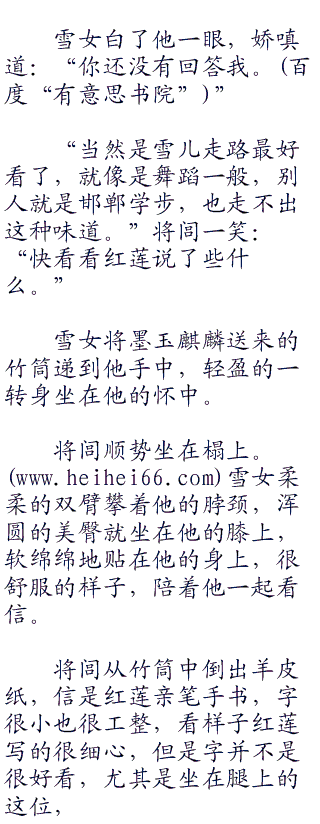 雪女白了他一眼，娇嗔
道：“你还没有回答我。(百
度“有意思书院”)”
“当然是雪儿走路最好
看了，就像是舞蹈一般，别
人就是邯郸学步，也走不出
这种味道。”将闾一笑：
“快看看红莲说了些什
么。”
雪女将墨玉麒麟送来的
竹筒递到他手中，轻盈的一
转身坐在他的怀中。
将闾顺势坐在榻上。
(www.heihei66.com)雪女柔
柔的双臂攀着他的脖颈，浑
圆的美臀就坐在他的膝上，
软绵绵地贴在他的身上，很
舒服的样子，陪着他一起看
信。
将闾从竹筒中倒出羊皮
纸，信是红莲亲笔手书，字
很小也很工整，看样子红莲
写的很细心，但是字并不是
很好看，尤其是坐在腿上的
这位，